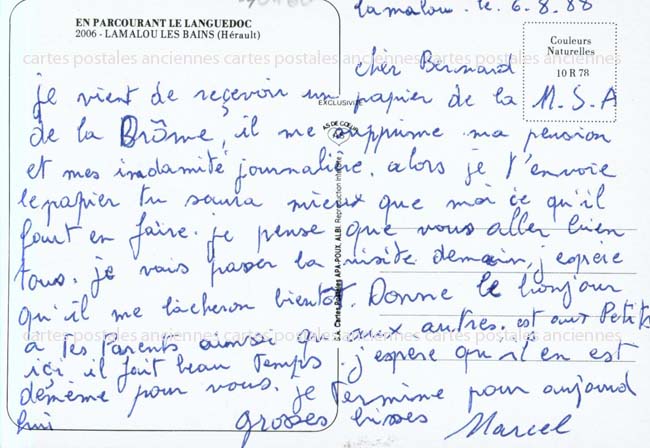 lamalou. le. 6.8.88
EN PARCOURANT LE LANGUEDOC
2006 - LAMALOU LES BAINS (Hérault)
Couleurs
Naturelles
10 R 78
cartes postales anciennes cartes postales anciennes cartes postales anciennes
EXCLUSIVITÉ
AS DE CŒUR
S.L. Cartes Postales APA-POUX, ALBI. Reproduction interdite
cher Bernard
je vient de reçevoir un papier de la M.S.A
de la Drôme, il me supprime ma pension
et mes indamité journalière. alors je t'envoie
le papier tu saura mieux que moi ce qu'il
faut en faire. je pense que vous aller bien
tous. je vais passer la visite demain, j'espère
qu'il me lâcheron bientôt. Donne le bonjour
a tes Parents ainsi que aux autres. est aux Petits
cartes postales anciennes cartes postales anciennes cartes postales anciennes
ici il fait beau temps. j'espère qu'il en est
demême pour vous. je termine pour aujourd
hui grosses bisses Marcel